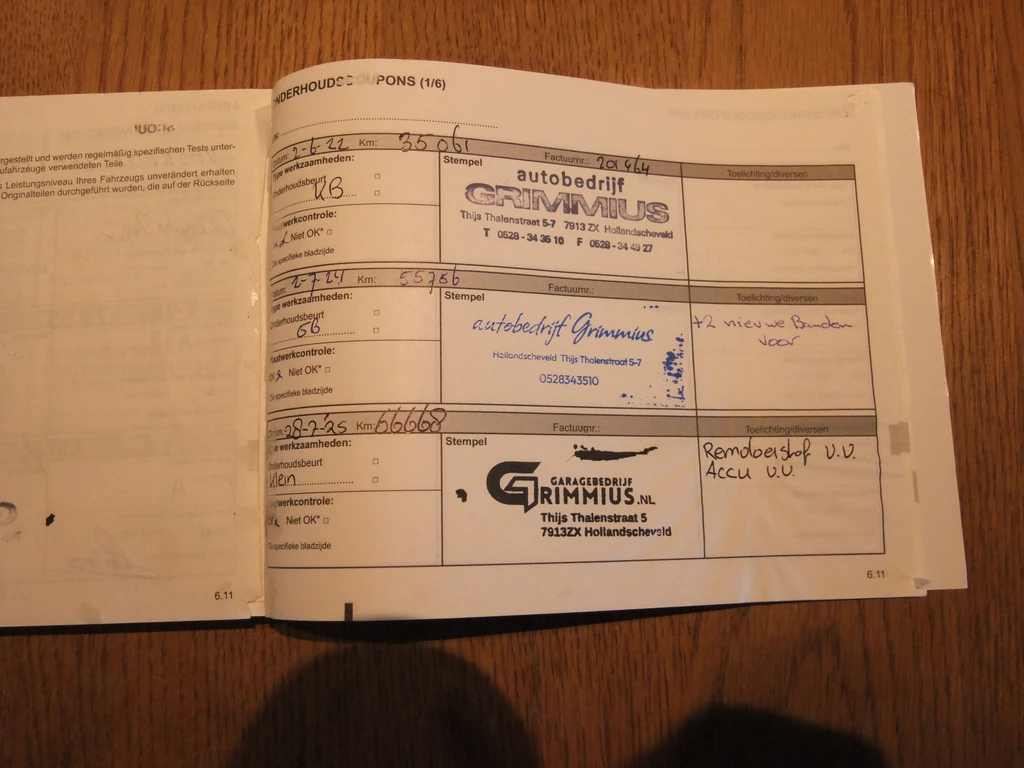 rgestellt und werden regelmäßig spezifischen Tests unter-
ufahrzeuge verwendeten Teile.
s Leistungsniveau Ihres Fahrzeugs unverändert erhalten
Originalteilen durchgeführt wurden, die auf der Rückseite
6.11
NDERHOUDSCOUPONS (1/6)
Datum: 2-6-22 Km: 35061 Factuurnr.: 201464
Type werkzaamheden:
Onderhoudsbeurt
KB
Plaatwerkcontrole:
Niet OK*
De specifieke bladzijde
Stempel
autobedrijf
GRIMMIUS
Thijs Thalenstraat 5-7 7913 ZX Hollandscheveld
T 0528 - 34 35 10 F 0528 - 34 49 27
Toelichting/diversen
Datum: 2-7-24 Km: 55756 Factuurnr.:
Type werkzaamheden:
Onderhoudsbeurt
GB
Plaatwerkcontrole:
OK Niet OK*
De specifieke bladzijde
Stempel
autobedrijf Grimmius
Hollandscheveld Thijs Thalenstraat 5-7
0528343510
Toelichting/diversen
+2 nieuwe Banden
voor
Datum: 28-7-'25 Km: 66668 Factuurnr.:
Type werkzaamheden:
Onderhoudsbeurt
Klein
Plaatwerkcontrole:
OK Niet OK*
De specifieke bladzijde
Stempel
GARAGEBEDRIJF
GRIMMIUS.NL
Thijs Thalenstraat 5
7913ZX Hollandscheveld
Toelichting/diversen
Remvloeistof v.v.
Accu v.v.
6.11